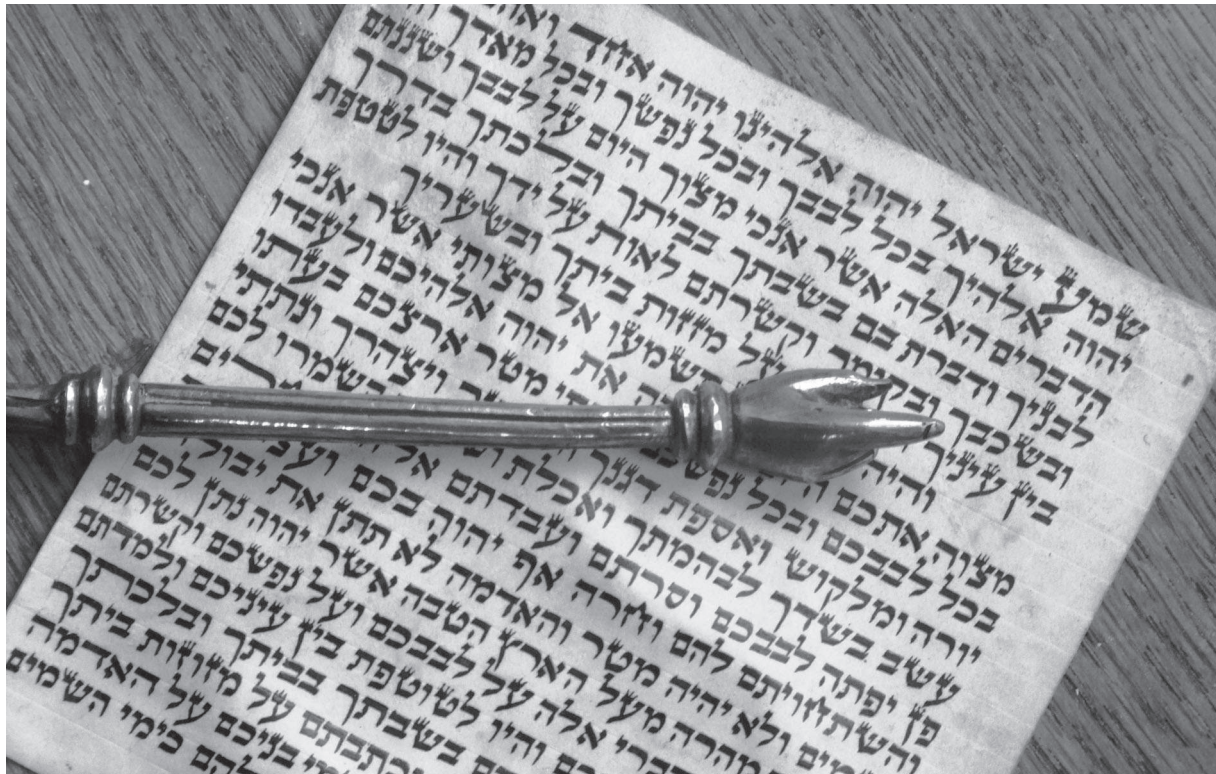 שמע ישראל יהוה אלהינו יהוה אחד
יהוה אלהיך בכל לבבך ובכל נפשך ובכל מאדך
הדברים האלה אשר אנכי מצוך היום על לבבך ושננתם
לבניך ודברת בם בשבתך בביתך ובלכתך בדרך
ובשכבך ובקומך וקשרתם לאות על ידך והיו לטטפת
בין עיניך על מזזות ביתך ובשעריך
והיה תשמעו אל מצותי אשר אנכי
מצוה אתכם את יהוה אלהיכם ולעבדו
בכל לבבכם ובכל נפשכם מטר ארצכם בעתו
יורה ומלקוש ואספת דגנך ויצהרך ונתתי
עשב בשדך לבהמתך ואכלת השמרו לכם
פן יפתה לבבכם וסרתם ועבדתם
והשתחויתם להם וחרה אף יהוה בכם
השמים ולא יהיה מטר והאדמה לא תתן את
מהרה מעל הארץ הטבה אשר יהוה נתן לכם
דברי אלה על לבבכם ועל נפשכם וקשרתם
והיו לטוטפת בין עיניכם ולמדתם
בשבתך בביתך ובלכתך
וכתבתם על מזוזות ביתך
בניכם על האדמה
להם כימי השמים